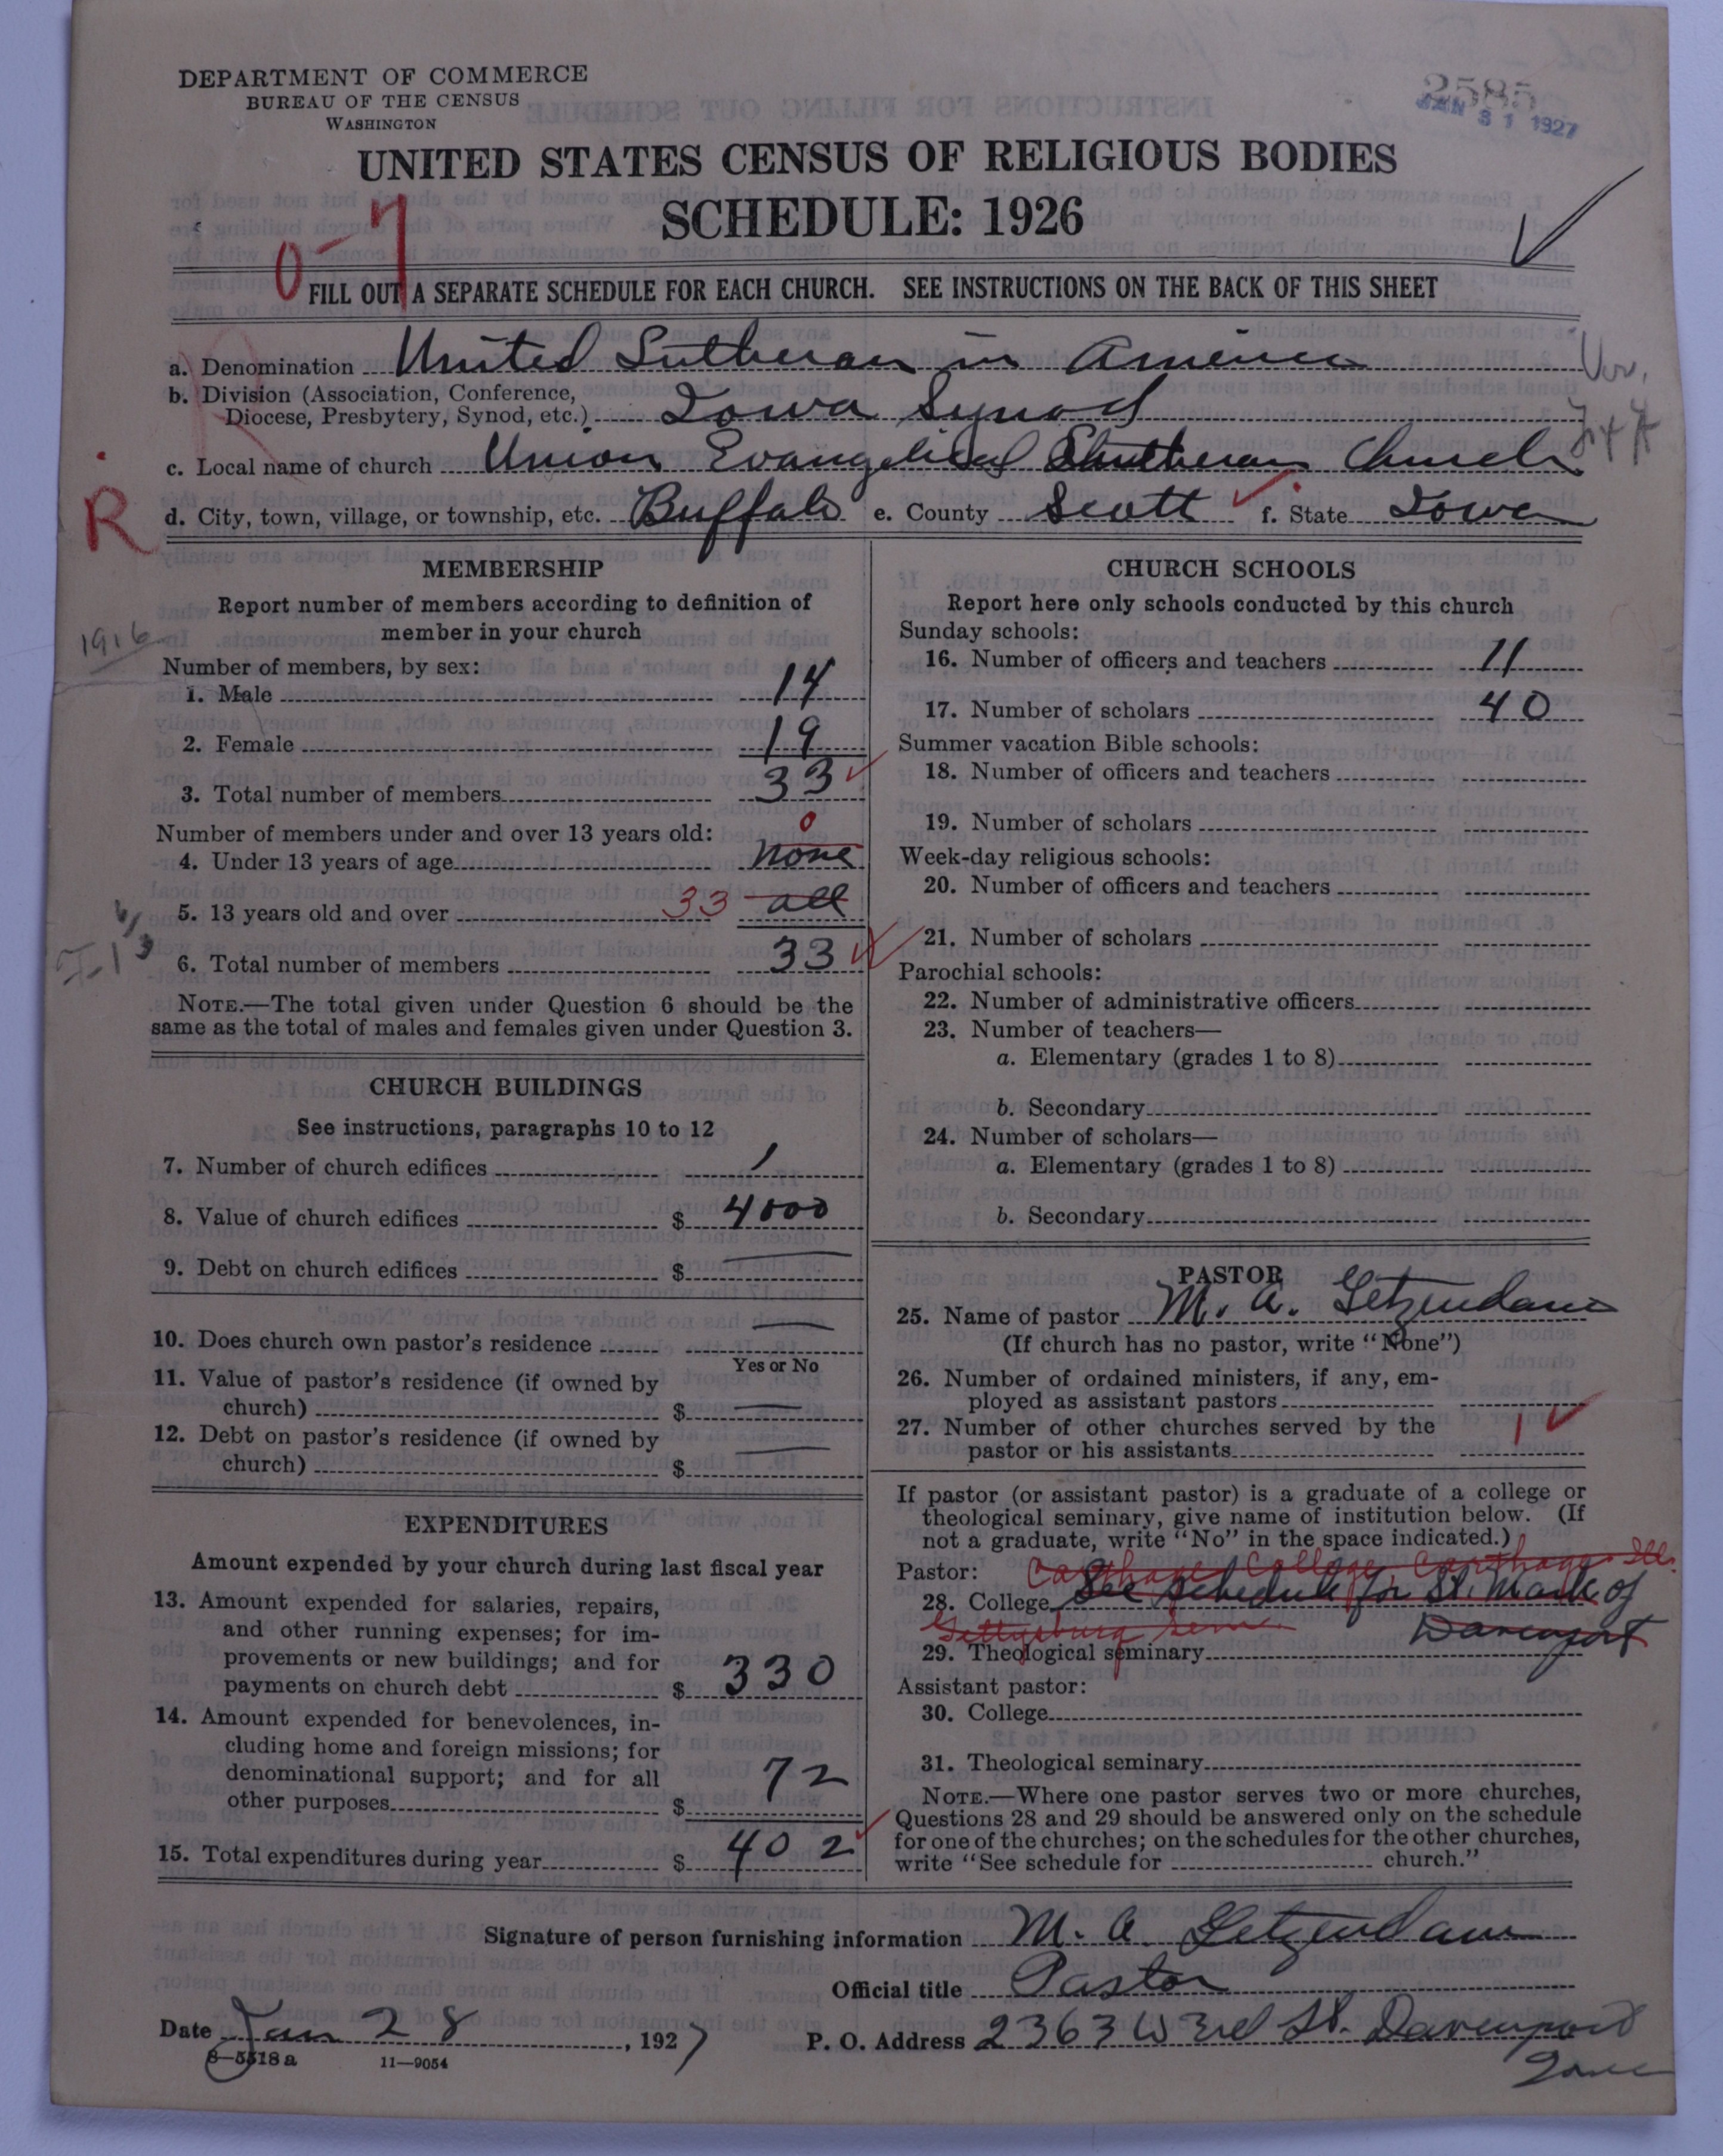 DEPARTMENT OF COMMERCE
BUREAU OF THE CENSUS
WASHINGTON
2585
JAN 31 1927
UNITED STATES CENSUS OF RELIGIOUS BODIES
SCHEDULE: 1926
0-7
FILL OUT A SEPARATE SCHEDULE FOR EACH CHURCH. SEE INSTRUCTIONS ON THE BACK OF THIS SHEET
a. Denomination United Lutheran in America
b. Division (Association, Conference,
Diocese, Presbytery, Synod, etc.) Iowa Synod
c. Local name of church Union Evangelical Lutheran Church
R
d. City, town, village, or township, etc. Buffalo e. County Scott f. State Iowa
MEMBERSHIP
Report number of members according to definition of
member in your church
1916
Number of members, by sex:
1. Male 14
2. Female 19
3. Total number of members 33
Number of members under and over 13 years old:
0
4. Under 13 years of age none
5. 13 years old and over 33 all
6. Total number of members 33
NOTE.—The total given under Question 6 should be the
same as the total of males and females given under Question 3.
CHURCH BUILDINGS
See instructions, paragraphs 10 to 12
7. Number of church edifices 1
8. Value of church edifices $ 4000
9. Debt on church edifices $ —
10. Does church own pastor's residence —
Yes or No
11. Value of pastor's residence (if owned by
church) $ —
12. Debt on pastor's residence (if owned by
church) $ —
EXPENDITURES
Amount expended by your church during last fiscal year
13. Amount expended for salaries, repairs,
and other running expenses; for im-
provements or new buildings; and for
payments on church debt $ 330
14. Amount expended for benevolences, in-
cluding home and foreign missions; for
denominational support; and for all
other purposes $ 72
15. Total expenditures during year $ 402
CHURCH SCHOOLS
Report here only schools conducted by this church
Sunday schools:
16. Number of officers and teachers 11
17. Number of scholars 40
Summer vacation Bible schools:
18. Number of officers and teachers
19. Number of scholars
Week-day religious schools:
20. Number of officers and teachers
21. Number of scholars
Parochial schools:
22. Number of administrative officers
23. Number of teachers—
a. Elementary (grades 1 to 8)
b. Secondary
24. Number of scholars—
a. Elementary (grades 1 to 8)
b. Secondary
PASTOR
25. Name of pastor M. A. Getzendaner
(If church has no pastor, write "None")
26. Number of ordained ministers, if any, em-
ployed as assistant pastors
27. Number of other churches served by the
pastor or his assistants 1
If pastor (or assistant pastor) is a graduate of a college or
theological seminary, give name of institution below. (If
not a graduate, write "No" in the space indicated.)
Pastor: Carthage College, Carthage Ill.
28. College See Schedule for St. Mark of
Gettysburg Sem. Davenport
29. Theological seminary
Assistant pastor:
30. College
31. Theological seminary
NOTE.—Where one pastor serves two or more churches,
Questions 28 and 29 should be answered only on the schedule
for one of the churches; on the schedules for the other churches,
write "See schedule for church."
Signature of person furnishing information M. A. Getzendaner
Official title Pastor
Date Jan 28, 1927 P. O. Address 2363 W 3rd St. Davenport
Iowa
8-5518a 11—9054